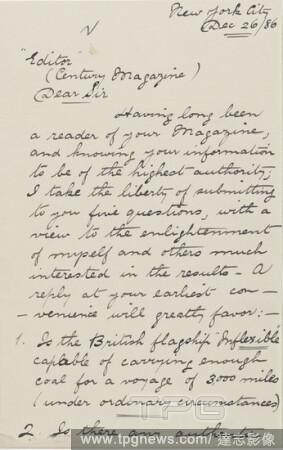 New York City
Dec 26/86
"Editor"
(Century Magazine)
Dear Sir
Having long been
a reader of your Magazine,
and knowing your information
to be of the highest authority;
I take the liberty of submitting
to you five questions, with a
view to the enlightenment
of myself and others much
interested in the results - A
reply at your earliest con-
-venience will greatly favor:-
1. Is the British flagship Inflexible
capable of carrying enough
coal for a voyage of 3000 miles
(under ordinary circumstances)
2. Is there any authentic
TPG
www.tpgnews.com/達志影像